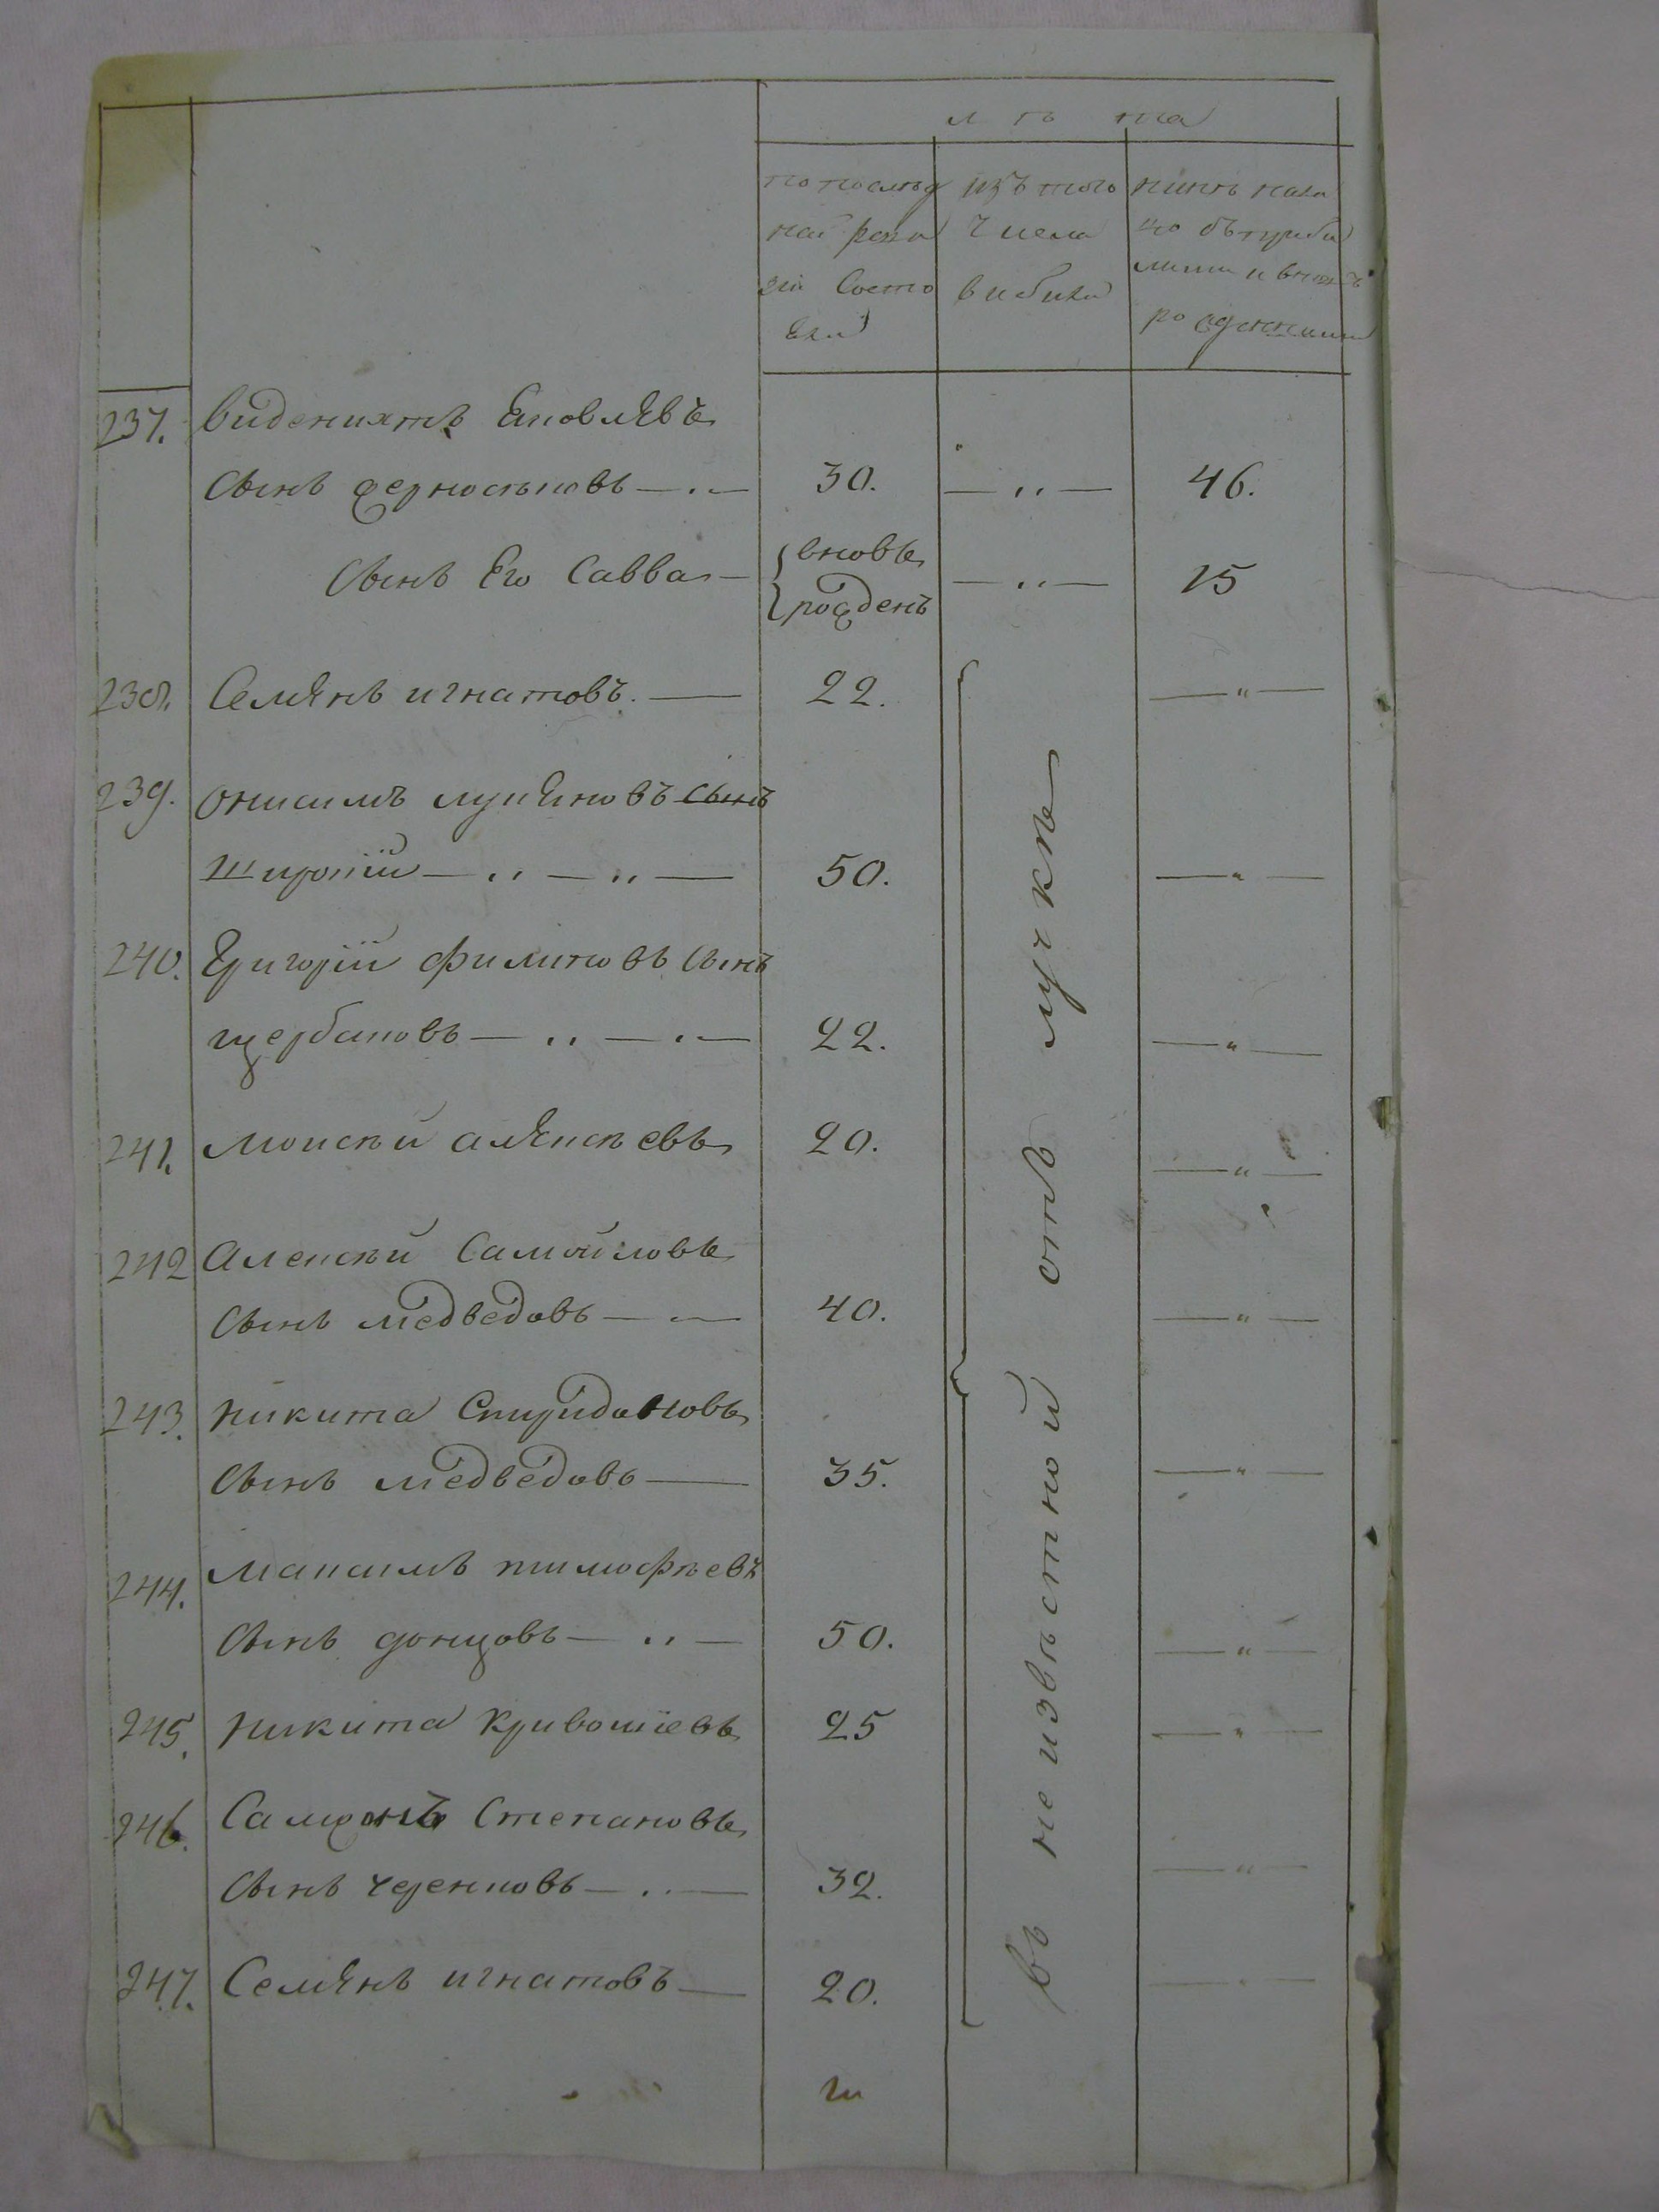 лѣта
по послѣд
ней реви
зiи Состо
яли
изъ того
числа
выбыли
нынѣ нали
цо съ прибы
лыми и вновь
рожденными
237. виденихтъ Яковлевъ
Сынъ жерноськовъ — 30. — „ — 46.
Сынъ Его Савва — вновь рожденъ — „ — 15
238. Семянъ игнатовъ. — 22. — „ —
239. онисимъ лукяновъ Сынъ
Широкiй — „ — „ — 50. — „ —
240. Григорiй филиповъ Сынъ
щербаковъ — „ — „ — 22. — „ —
241. Моисѣй алексѣевъ 20. — „ —
242 Алексѣй Самойловъ
Сынъ медведовъ — 40. — „ —
243. никита Спиридоновъ
Сынъ медведовъ — 35. — „ —
244. Максимъ тимофѣевъ
Сынъ донцовъ — „ — 50. — „ —
245. никита Кривошiевъ 25 — „ —
246. Самсонъ Степановъ
Сынъ черенковъ — 32. — „ —
247. Семянъ игнатовъ — 20. — „ —
въ неизвѣстной отлучкѣ